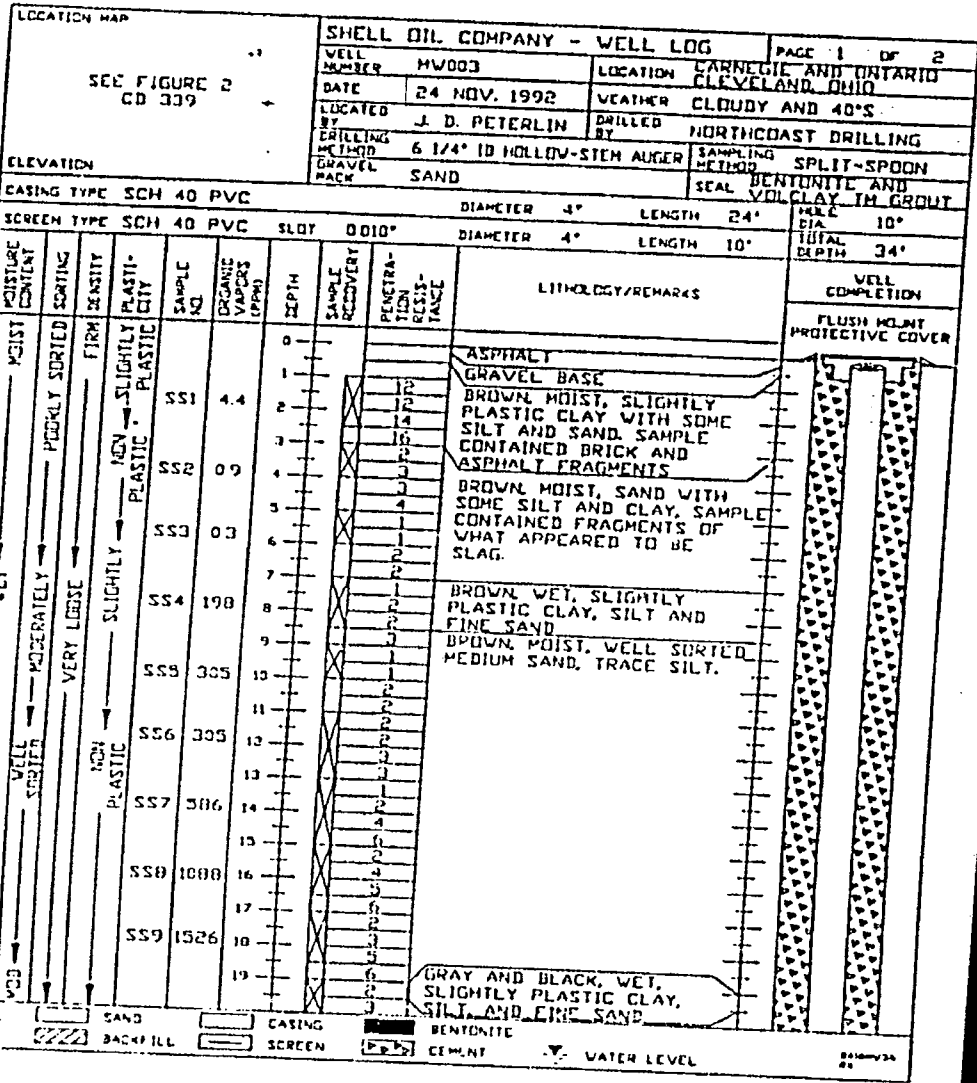 LOCATION MAP
SEE FIGURE 2
CD 339
ELEVATION
SHELL OIL COMPANY - WELL LOG
PAGE 1 OF 2
WELL NUMBER MW003
LOCATION CARNEGIE AND ONTARIO
CLEVELAND, OHIO
DATE 24 NOV. 1992
WEATHER CLOUDY AND 40°S
LOCATED BY J. D. PETERLIN
DRILLED BY NORTHCOAST DRILLING
DRILLING METHOD 6 1/4" ID HOLLOW-STEM AUGER
SAMPLING METHOD SPLIT-SPOON
GRAVEL PACK SAND
SEAL BENTONITE AND
VOLCLAY TM GROUT
CASING TYPE SCH 40 PVC DIAMETER 4" LENGTH 24' HOLE DIA. 10"
SCREEN TYPE SCH 40 PVC SLOT 0.010" DIAMETER 4" LENGTH 10' TOTAL DEPTH 34'
MOISTURE CONTENT
SORTING
DENSITY
PLASTI-CITY
SAMPLE NO.
ORGANIC VAPORS (PPM)
DEPTH
SAMPLE RECOVERY
PENETRA-TION RESIS-TANCE
LITHOLOGY/REMARKS
WELL COMPLETION
FLUSH MOUNT
PROTECTIVE COVER
MOIST
POORLY SORTED
MODERATELY
WELL SORTED
FIRM
VERY LOOSE
SLIGHTLY PLASTIC
NON PLASTIC
SLIGHTLY
NON PLASTIC
SS1 4.4
SS2 0.9
SS3 0.3
SS4 190
SS5 305
SS6 305
SS7 586
SS8 1080
SS9 1526
0
1
2
3
4
5
6
7
8
9
10
11
12
13
14
15
16
17
18
19
ASPHALT
GRAVEL BASE
BROWN, MOIST, SLIGHTLY
PLASTIC CLAY WITH SOME
SILT AND SAND. SAMPLE
CONTAINED BRICK AND
ASPHALT FRAGMENTS
BROWN, MOIST, SAND WITH
SOME SILT AND CLAY, SAMPLE
CONTAINED FRAGMENTS OF
WHAT APPEARED TO BE
SLAG.
BROWN, WET, SLIGHTLY
PLASTIC CLAY, SILT AND
FINE SAND
BROWN, MOIST, WELL SORTED
MEDIUM SAND, TRACE SILT.
GRAY AND BLACK, WET,
SLIGHTLY PLASTIC CLAY,
SILT, AND FINE SAND
SAND CASING BENTONITE
BACKFILL SCREEN CEMENT WATER LEVEL